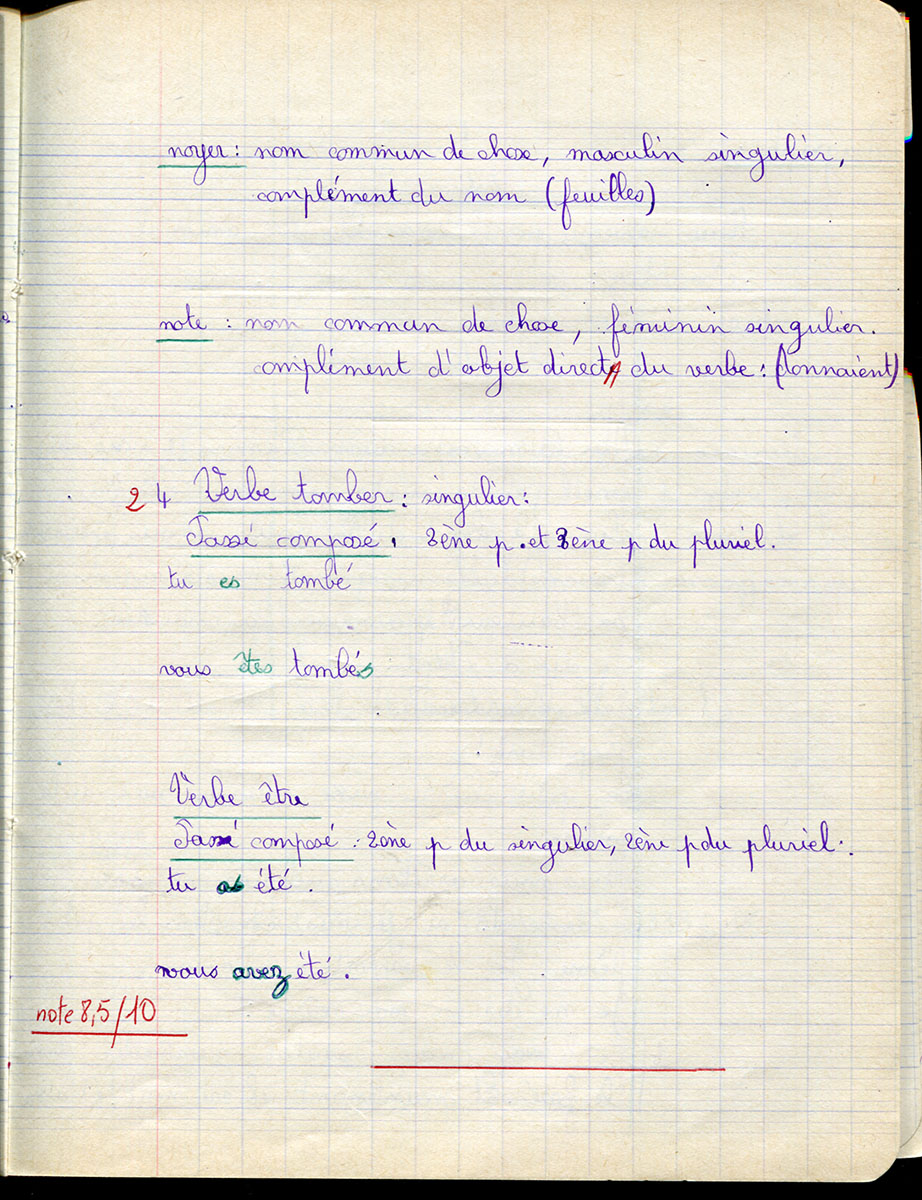 noyer : nom commun de chose, masculin singulier,
complément du nom (feuilles)
note : nom commun de chose, féminin singulier.
complément d'objet direct du verbe : (donnaient)
2 4 Verbe tomber : singulier :
Passé composé. 2ène p. et 2ène p du pluriel.
tu es tombé
vous êtes tombés
Verbe être
Passé composé : 2ène p du singulier, 2ène p du pluriel.
tu as été.
vous avez été.
note 8,5/10